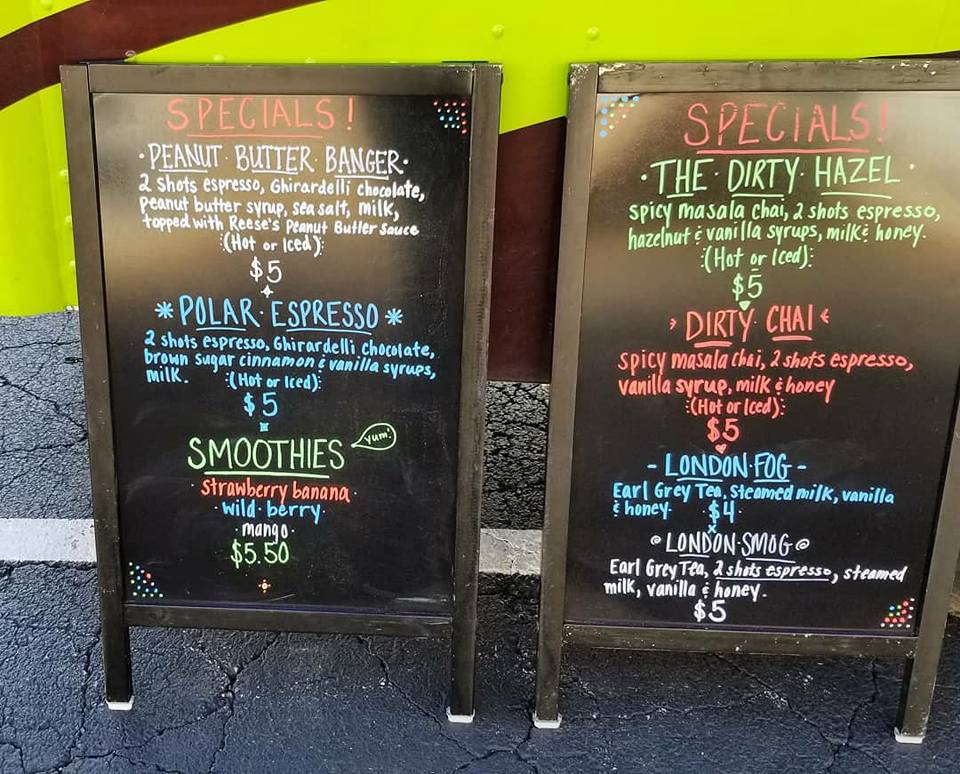 SPECIALS!
·PEANUT·BUTTER·BANGER·
2 shots espresso, Ghirardelli chocolate,
peanut butter syrup, sea salt, milk,
topped with Reese's Peanut Butter Sauce
(Hot or Iced)
$5
*POLAR·ESPRESSO*
2 shots espresso, Ghirardelli chocolate,
brown sugar cinnamon & vanilla syrups,
milk. (Hot or Iced)
$5
SMOOTHIES yum!
·strawberry banana·
·wild·berry·
·mango·
$5.50
SPECIALS!
·THE·DIRTY·HAZEL·
spicy masala chai, 2 shots espresso,
hazelnut & vanilla syrups, milk & honey.
(Hot or Iced)
$5
DIRTY·CHAI
spicy masala chai, 2 shots espresso,
vanilla syrup, milk & honey
(Hot or Iced)
$5
-LONDON·FOG-
Earl Grey Tea, steamed milk, vanilla
& honey. $4
LONDON·SMOG
Earl Grey Tea, 2 shots espresso, steamed
milk, vanilla & honey.
$5